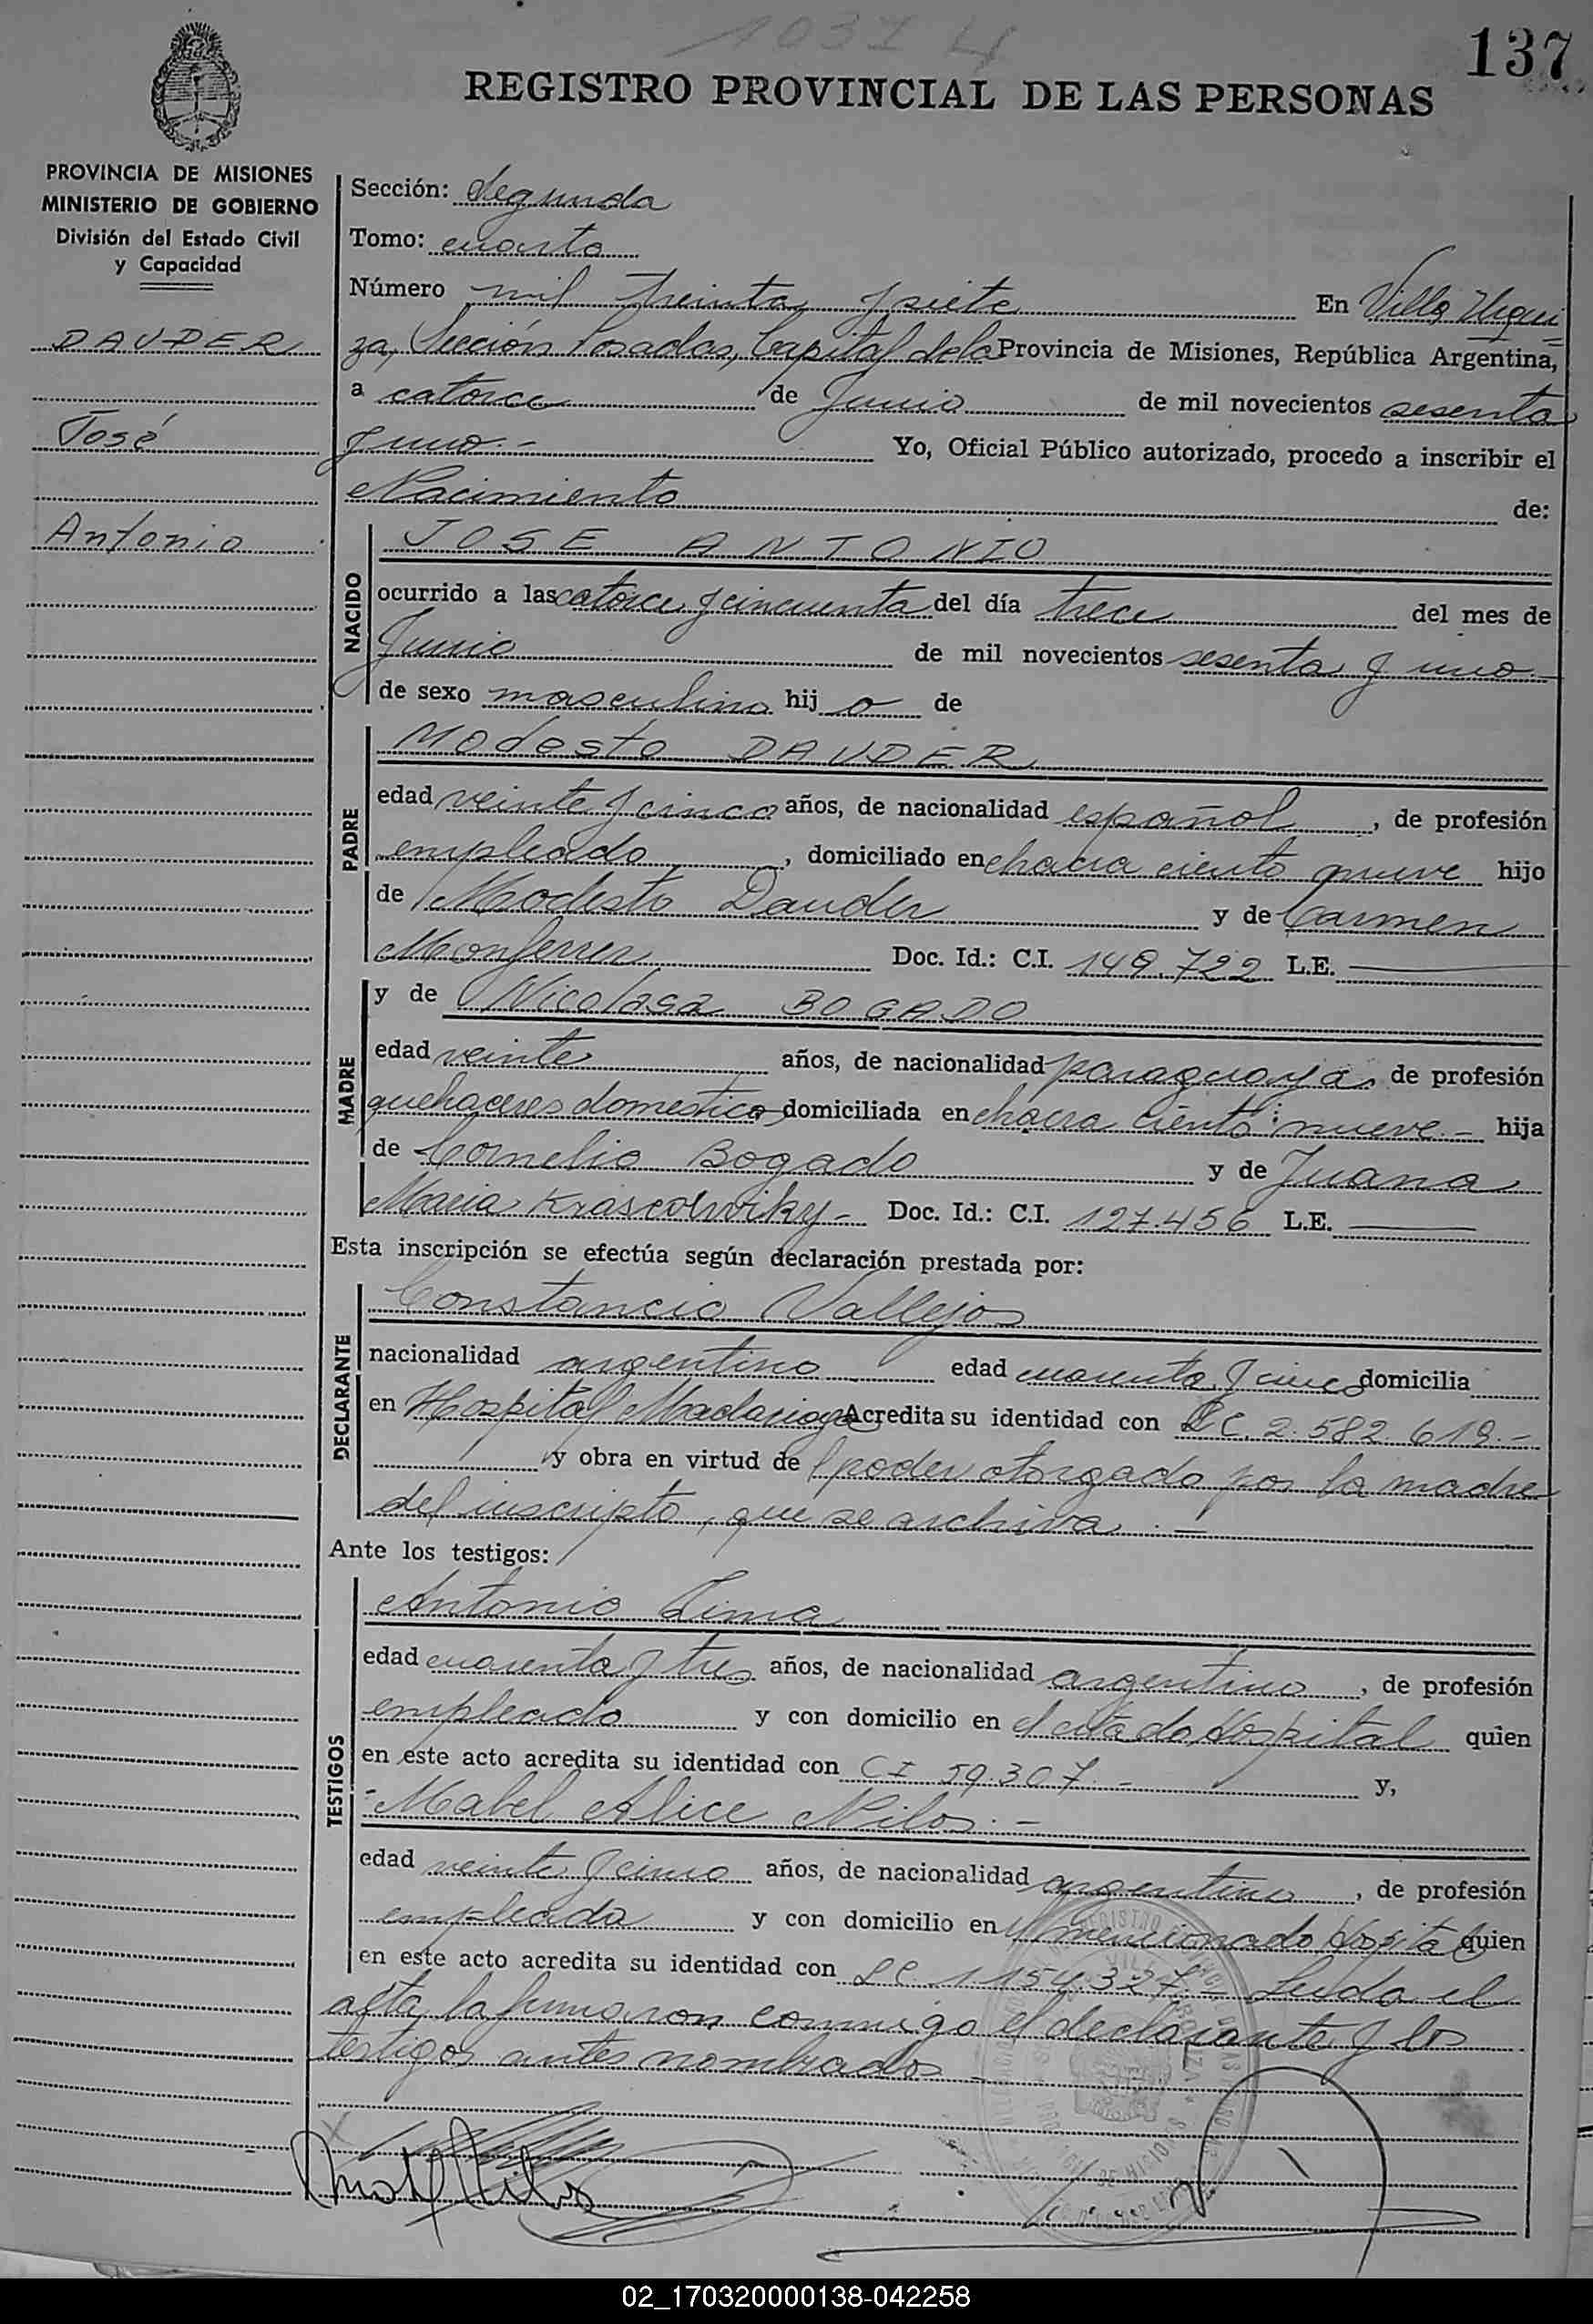 1037 4
137
REGISTRO PROVINCIAL DE LAS PERSONAS
PROVINCIA DE MISIONES
MINISTERIO DE GOBIERNO
División del Estado Civil
y Capacidad
DAUDER
José
Antonio
Sección: Segunda
Tomo: cuarto
Número mil treinta y siete En Villa Urqui
za, Sección Posadas, Capital de la Provincia de Misiones, República Argentina,
a catorce de Junio de mil novecientos sesenta
y uno.- Yo, Oficial Público autorizado, procedo a inscribir el
Nacimiento de:
NACIDO
JOSE ANTONIO
ocurrido a las catorce y cincuenta del día trece del mes de
Junio de mil novecientos sesenta y uno.-
de sexo masculino hij o de
PADRE
Modesto DAUDER
edad veinte y cinco años, de nacionalidad español, de profesión
empleado, domiciliado en chacra ciento nueve hijo
de Modesto Dauder y de Carmen
Monferrer Doc. Id.: C.I. 149.722 L.E.
MADRE
y de Nicolasa BOGADO
edad veinte años, de nacionalidad paraguaya, de profesión
quehaceres domestico domiciliada en chacra ciento nueve.- hija
de Cornelio Bogado y de Juana
Maria Doc. Id.: C.I. 127.456 L.E.
Esta inscripción se efectúa según declaración prestada por:
DECLARANTE
Constancio Vallejos
nacionalidad argentino edad cuarenta y cinco domicilia
en Hospital Madariaga Acredita su identidad con L.C. 2.582.619.-
y obra en virtud del poder otorgado por la madre
del inscripto, que se archiva.-
Ante los testigos:
TESTIGOS
Antonio Lima
edad cuarenta y tres años, de nacionalidad argentino, de profesión
empleado y con domicilio en el citado Hospital quien
en este acto acredita su identidad con CI 59.307.- y,
Mabel Alice Nilos.-
edad veinte y cinco años, de nacionalidad argentina, de profesión
empleada y con domicilio en el mencionado Hospital quien
en este acto acredita su identidad con L.C. 1.154.327.- Leida el
acta, la firmaron conmigo el declarante y los
testigos antes nombrados.-
02_170320000138-042258